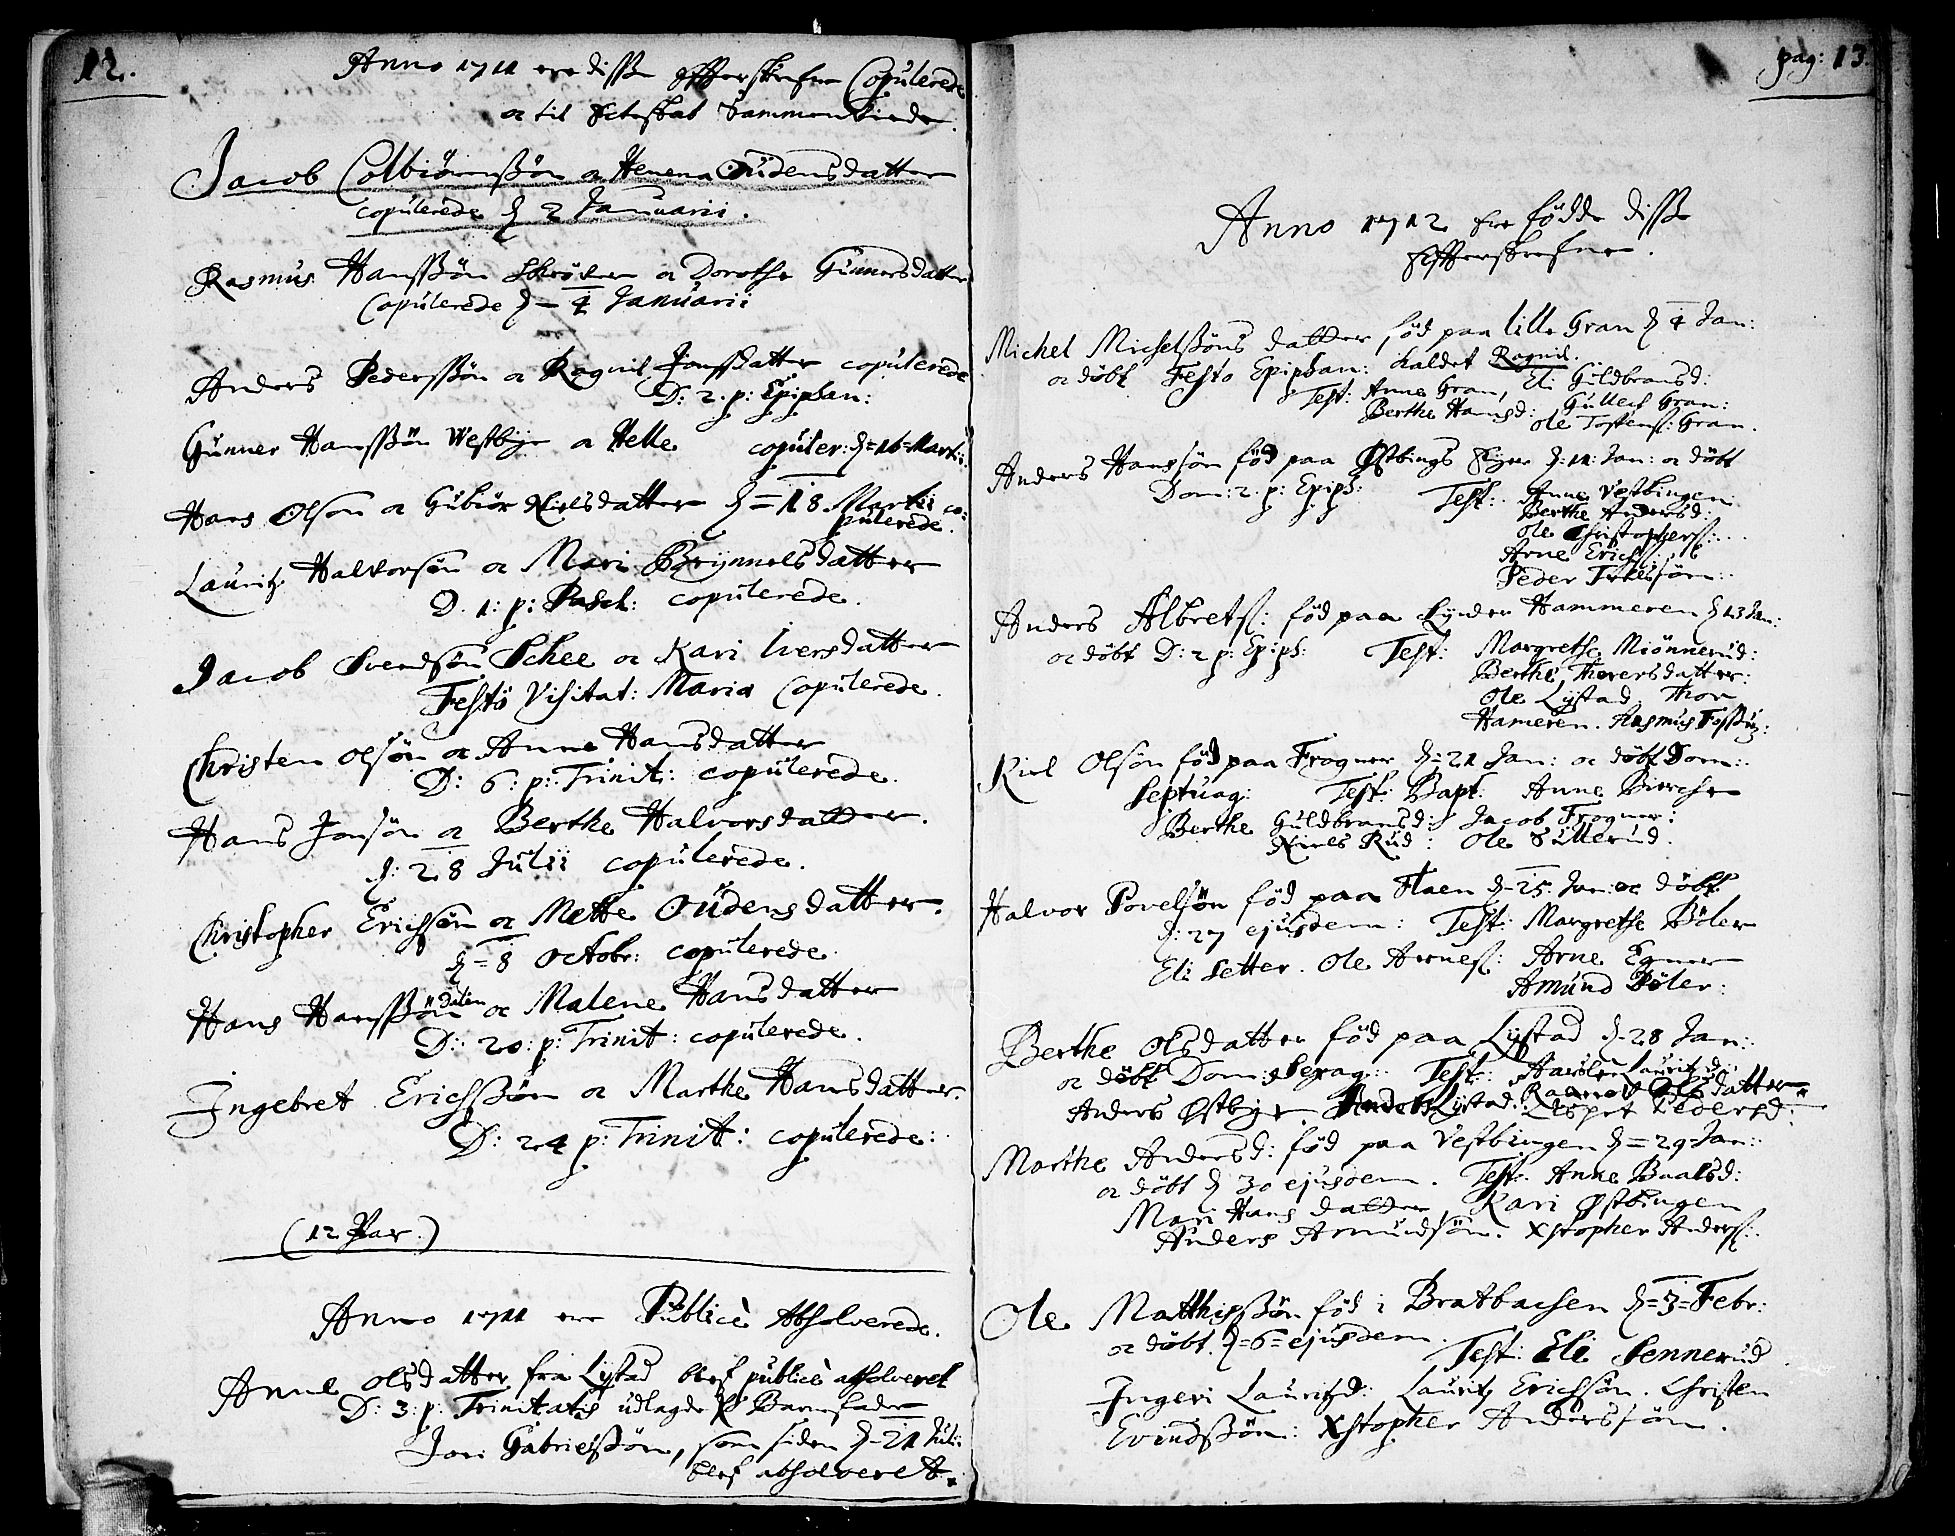 12.
Anno 1711 ere disse effterskrefne Copulerede
oc til Ecteskab Sammenviede.
Jacob Colbiörnssön oc Helena Oudensdatter
copulerede d 2 Januarii.
Rasmus Hanssön oc Dorothe Gunnersdatter
Copulerede d – 4 Januarii
Anders Pederssön oc Ragnil Jonssdatter copulerede
D: 2. p: Epiphan:
Gunner Hanssön Westbye oc Helle copuler: d = 16 = Martii.
Hans Olson oc Gubiör Nielsdatter d = 18. Martii co-
pulerede.
Lauritz Halvorsön oc Mari Brynnelsdatter
D. 1: p: Pasch: copulerede.
Jacob Svendsön Schee oc Kari Iversdatter
Festo Visitat: Maria Copulerede.
Christen Olsön oc Anne Hansdatter
D: 6: p: Trinit: copulerede.
Hans Jonsön oc Berthe Halvorsdatter.
d: 28 Julii copulerede.
Christopher Erichsön oc Mette Oudensdatter.
d = 8 Octobr: copulerede.
Hans Hanssön dalen oc Malene Hansdatter
D: 20: p: Trinit: copulerede.
Ingebret Erichssön oc Marthe Hansdatter.
D: 24 p: Trinit: copulerede:
(12 Par.)
Anno 1711 ere Publicè Absolverede.
Anne Olsdatter fra Lystad blef publicè absolveret
D: 3: p: Trinitatis udlagde til Barnefader
Jon Gabrielssön, som siden d – 21 Juli:
blef absolveret.
pag: 13.
Anno 1712 ere födde disse
Effterskrefne.
Michel Michelssöns datter, föd paa lille Gran d 4 Jan:
oc döbt Festo Epiphan: kaldet Ragnil.
Test: Anne Gran, Eli Guldbransd:
Berthe Hansd: Gullech Gran:
Ole Tostens: Gran.
Anders Hanssön föd paa Østbings Eyer d: 11: Jan: oc döbt
Dom: 2. p: Epiph: Test: Anne Vestbingen
Berthe Andersd:
Ole Christophers:
Arne Erichs:
Peder
Anders Albrets: föd paa Hammeren d 13 Jan:
oc döbt D: 2 p: Epiph: Test: Margrethe Miönnerud:
Berthe Thoresdatter:
Ole Lystad Thor
Hameren. Rasmus
Kiel Olsön föd paa Frogner d = 21 Jan: oc döbt Dom:
Septuag: Test: Bapt: Anne Bierche
Berthe Guldbransd: Jacob Frogner:
Niels Rud: Ole Sullerud.
Halvor Povelsön föd paa Flaen d – 25. Jan: oc döbt
d: 27 ejusdem: Test: Margrethe Böler
Eli Setter. Ole Arnes: Arne Egner
Amund Böler:
Berthe Olsdatter föd paa Lystad d – 28 Jan:
oc döbt Dom: Sexag: Test: Lauritzd:
Anders Østbye Anders Lystad. Ragnil Olsdatter
Pedersd:
Marthe Andersd: föd paa Vestbingen d = 29 = Jan:
oc döbt d 30 ejusdem. Test: Anne
Mari Hans datter, Kari Østbingen
Anders Amundsön. Xstopher Anders:
Ole Matthissön föd i Bratbachen d = 3 = Febr:
oc döbt d = 6 = ejusdem. Test: Eli Sennerud
Ingeri Lauritzd: Lauritz Erichsön. Christen
Evindssön: Xstopher Anderssön.